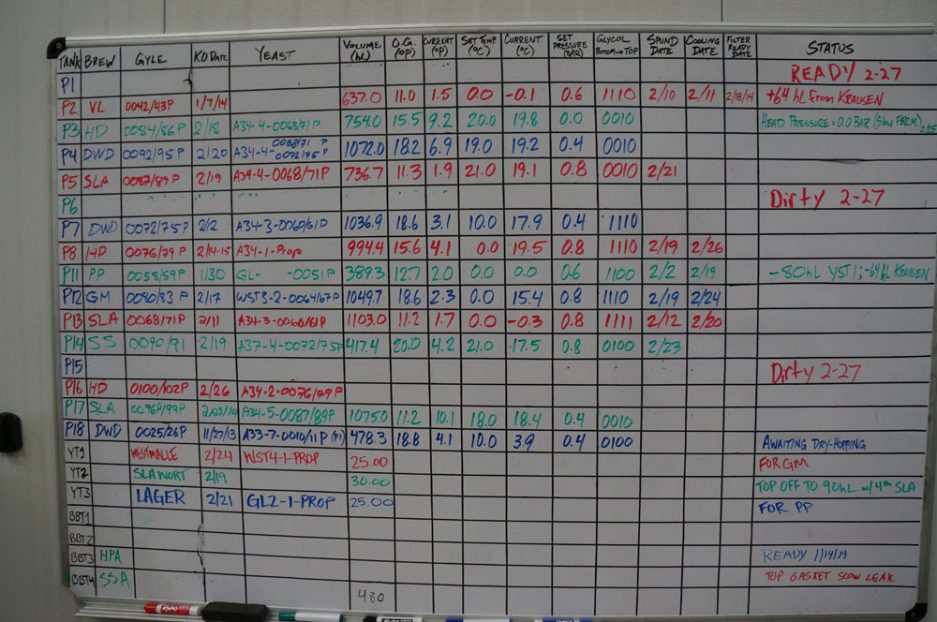 TANK BREW GYLE KO DATE YEAST VOLUME (hL) O.G. (°P) CURRENT (°P) SET TEMP (°C) CURRENT (°C) SET PRESSURE (BAR) GLYCOL BOTTOM→TOP SPUND DATE COOLING DATE FILTER READY DATE STATUS
P1 READY 2-27
P2 VL 0042/43P 1/7/14 637.0 11.0 1.5 0.0 -0.1 0.6 1110 2/10 2/11 2/18/14 +64 hL from KRAUSEN
P3 HD 0084/86P 2/18 A34-4-0068/71P 754.0 15.5 9.2 20.0 19.8 0.0 0010 HEAD PRESSURE = 0.0 BAR (SLOW FERM)
P4 DWD 0092/95P 2/20 A34-4-0068/71P 0072/75P 1072.0 18.2 6.9 19.0 19.2 0.4 0010
P5 SLA 0087/89P 2/19 A34-4-0068/71P 736.7 11.3 1.9 21.0 19.1 0.8 0010 2/21
P6 Dirty 2-27
P7 DWD 0072/75P 2/12 A34-3-0060/61P 1036.9 18.6 3.1 10.0 17.9 0.4 1110
P8 HD 0076/79P 2/14-15 A34-1-Prop 994.4 15.6 4.1 0.0 19.5 0.8 1110 2/19 2/26
P11 PP 0058/59P 1/30 GL- -0051P 389.3 12.7 2.0 0.0 0.0 0.6 1100 2/2 2/19 -80hL YST1; -64 hL KRAUSEN
P12 GM 0080/83P 2/17 WST3-2-0064/67P 1049.7 18.6 2.3 0.0 15.4 0.8 1110 2/19 2/24
P13 SLA 0068/71P 2/11 A34-3-0060/61P 1103.0 11.2 1.7 0.0 -0.3 0.8 1111 2/12 2/20
P14 SS 0090/91 2/19 A37-4-0072/75P 417.4 20.0 4.2 21.0 17.5 0.8 0100 2/23
P15 Dirty 2-27
P16 HD 0100/102P 2/26 A34-2-0076/79P
P17 SLA 0096P/99P A34-5-0087/89P 1075.0 11.2 10.1 18.0 18.4 0.4 0010
P18 DWD 0025/26P 11/27/13 A33-7-0010/11P 478.3 18.8 4.1 10.0 3.9 0.4 0100 AWAITING DRY-HOPPING
YT1 WESTMALLE 2/24 WST4-1-PROP 25.00 FOR GM
YT2 SLA WORT 2/19 30.00 TOP OFF TO 90hL w/ 4th SLA
YT3 LAGER 2/21 GL2-1-PROP 25.00 FOR PP
BBT1
BBT2
BBT3 HPA READY 1/14/14
BBT4 SSA TOP GASKET SLOW LEAK
480